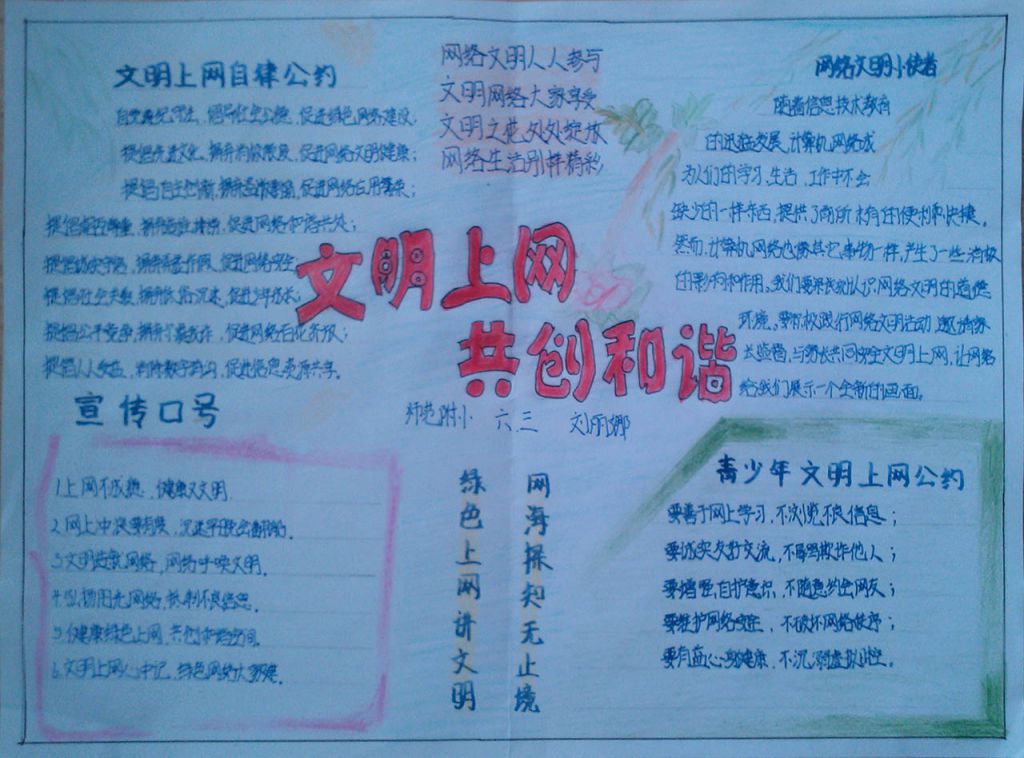 文明上网自律公约
自觉遵纪守法，倡导社会公德，促进绿色网络建设；
提倡先进文化，摒弃消极颓废，促进网络文明健康；
提倡自主创新，摒弃盗版剽窃，促进网络应用繁荣；
提倡互相尊重，摒弃造谣诽谤，促进网络和谐共处；
提倡诚实守信，摒弃弄虚作假，促进网络安全
提倡社会关爱，摒弃低俗沉迷，促进少年成长；
提倡公平竞争，摒弃尔虞我诈，促进网络百花齐放；
提倡人人受益，消除数字鸿沟，促进信息资源共享。
网络文明人人参与
文明网络大家享受
文明之花处处绽放
网络生活别样精彩
网络文明小使者
随着信息技术教育
的迅猛发展，计算机网络成
为人们的学习、生活、工作中不会
缺少的一样东西，提供了前所未有的便利和快捷。
然而，计算机网络也像其它事物一样，产生了一些消极
的影响和作用。我们要求我们认识网络文明的道德
环境。要积极践行网络文明活动，邀请家
长监督，与家长共同安全文明上网，让网络
给我们展示一个全新的画面。
文明上网
共创和谐
师范附小 六.三 刘丽娜
宣传口号
1.上网不成瘾，健康又文明.
2.网上冲浪要有度，
3.文明
网络，网络呼唤文明.
4.弘扬阳光网络，抵制不良信息.
5.健康绿色上网，共创和谐空间.
6.文明上网心中记，绿色网络大家建.
绿色上网讲文明
网海探知无止境
青少年文明上网公约
要善于网上学习，不浏览不良信息；
要诚实友好交流，不辱骂欺诈他人；
要增强自护意识，不随意约会网友；
要维护网络安全，不破坏网络秩序；
要有益身心健康，不沉溺虚拟时空。